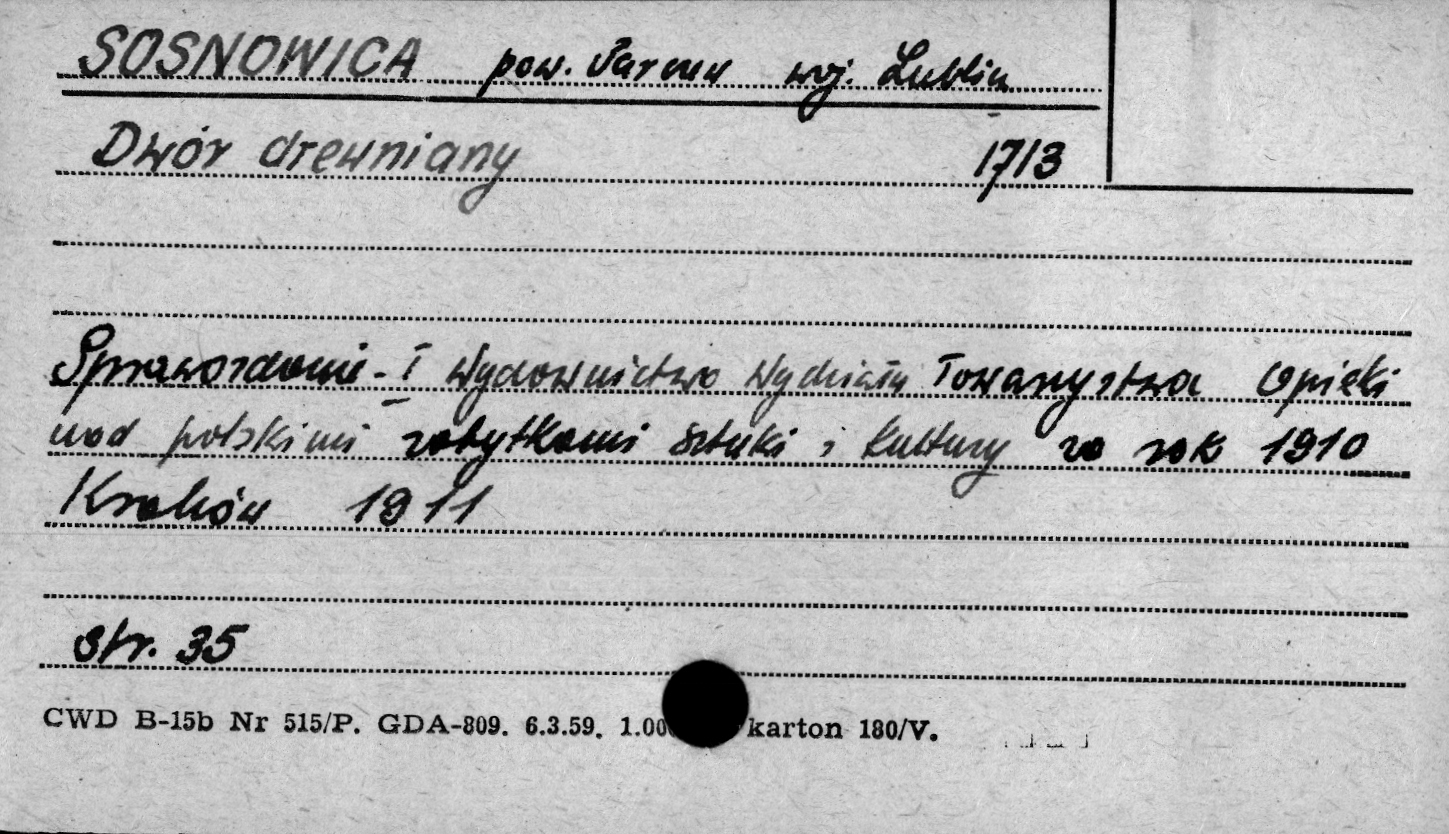 SOSNOWICA pow. Parczew woj. Lublin
Dwór drewniany 1713
Sprawozdanie - I Wydawnictwo Wydziału Towarzystwa Opieki
nad polskimi zabytkami sztuki i kultury za rok 1910
Kraków 1911
Str. 35
CWD B-15b Nr 515/P. GDA-809. 6.3.59. 1.00 karton 180/V.